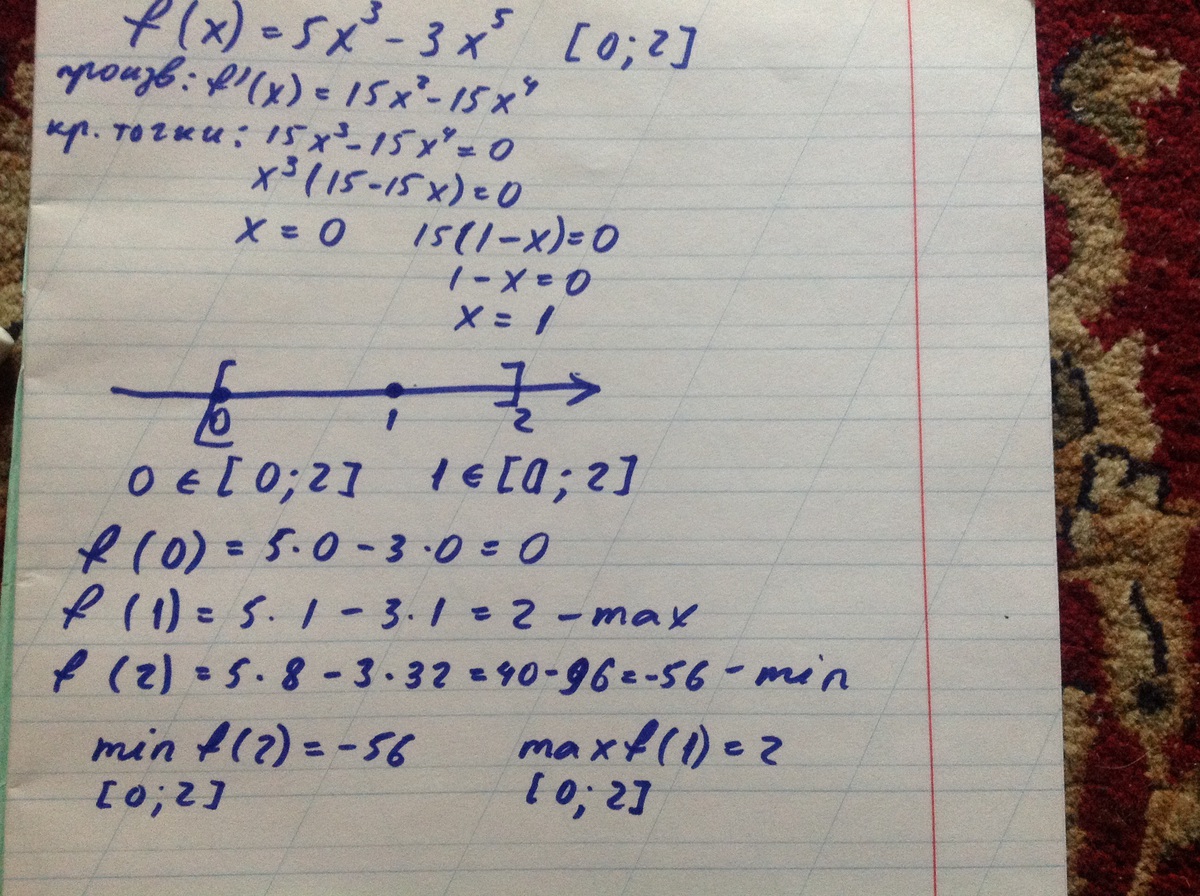 f(x) = 5x³ - 3x⁵ [0;2]
произв: f'(x) = 15x² - 15x⁴
кр. точки: 15x³ - 15x⁴ = 0
x³(15 - 15x) = 0
x = 0 15(1 - x) = 0
1 - x = 0
x = 1
0 1 2
0 ∈ [0;2] 1 ∈ [0;2]
f(0) = 5·0 - 3·0 = 0
f(1) = 5·1 - 3·1 = 2 - max
f(2) = 5·8 - 3·32 = 40 - 96 = -56 - min
min f(2) = -56 max f(1) = 2
[0;2] [0;2]